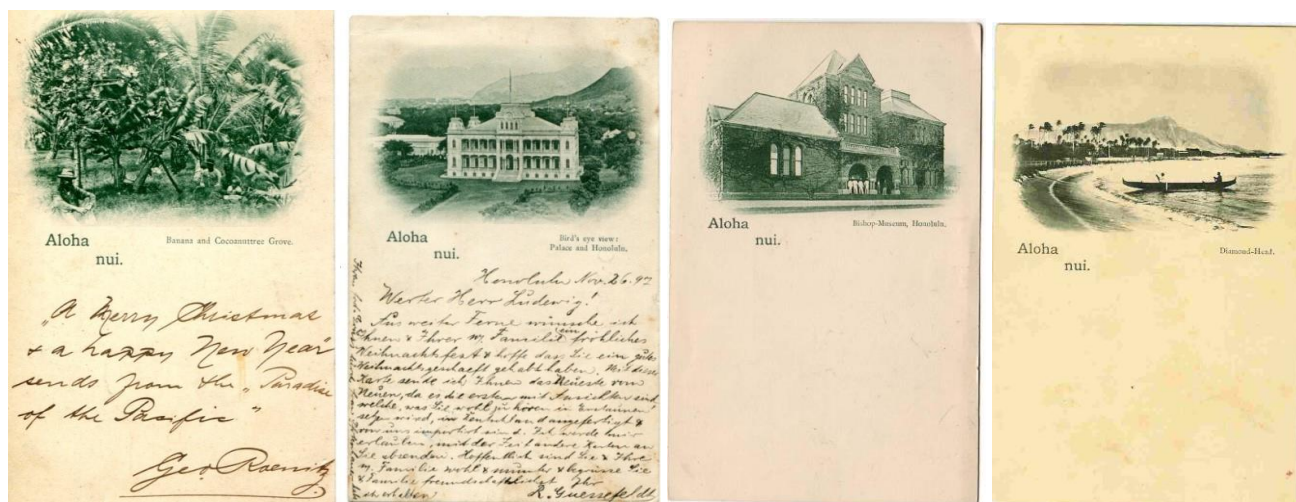 Aloha
nui.
Banana and Cocoanuttree Grove.
„A Merry Christmas
& a happy New Year"
sends from the „Paradise
of the Pacific"
Geo Roenitz
Aloha
nui.
Bird's eye view:
Palace and Honolulu.
Honolulu Nov. 26. 97
Werter Herr Ludewig!
Aus weiter Ferne wünsche ich
Ihnen & Ihrer w. Familie ein fröhliches
Weihnachtsfest & hoffe dass Sie ein gutes
Weihnachtsgeschaeft gehabt haben. Mit dieser
Karte sende ich Ihnen das Neueste vom
Neuen, da es die ersten mit Ansichten sind
welche, was Sie wohl zu hören in Erstaunen
setzen wird, in Deutschland angefertigt &
von uns importirt sind. Ich werde mir
erlauben, mit der Zeit andere Karten an
Sie absenden. Hoffentlich sind Sie & Ihre
w. Familie wohl & munter & begrüsse Sie
& Familie freundschaftlichst Ihr
Aloha
nui.
Bishop-Museum, Honolulu.
Aloha
nui.
Diamond-Head.